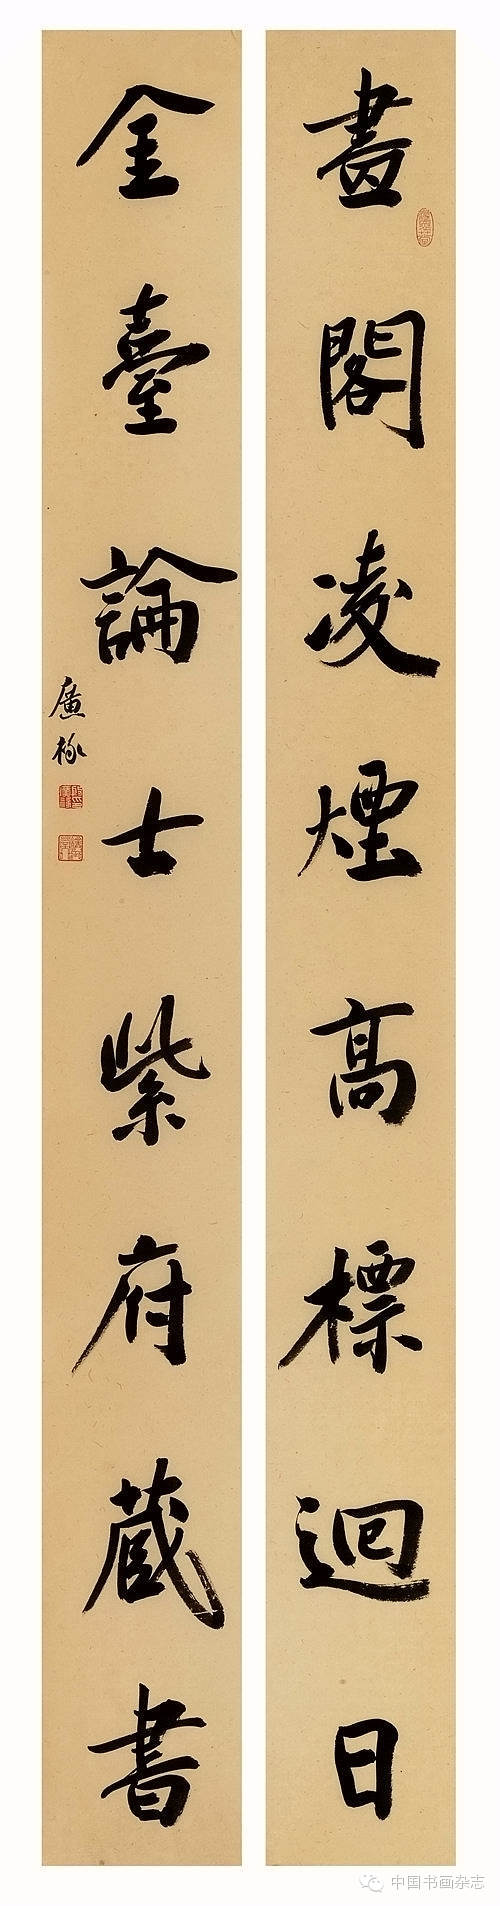 畫閣凌煙高標迴日
金臺論士紫府蔵書
廣椽
中国书画杂志